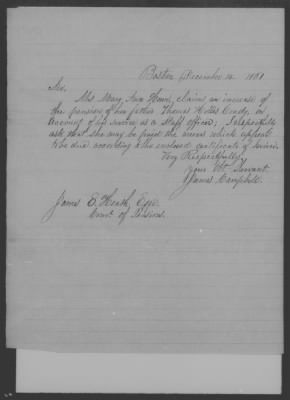 Boston December 12. 1851
Sir,
Mrs. Mary Ann claims an increase of
the pension of her father Thomas Hollis Condy, on
account of his service as a Staff officer; I respectfully
ask that she may be paid the arrears which appear
to be due according to the enclosed certificate of service.
Very Respectfully
Your Obt Servant
James Campbell.
James E. Heath, Esqr.
Comr. of Pensions.